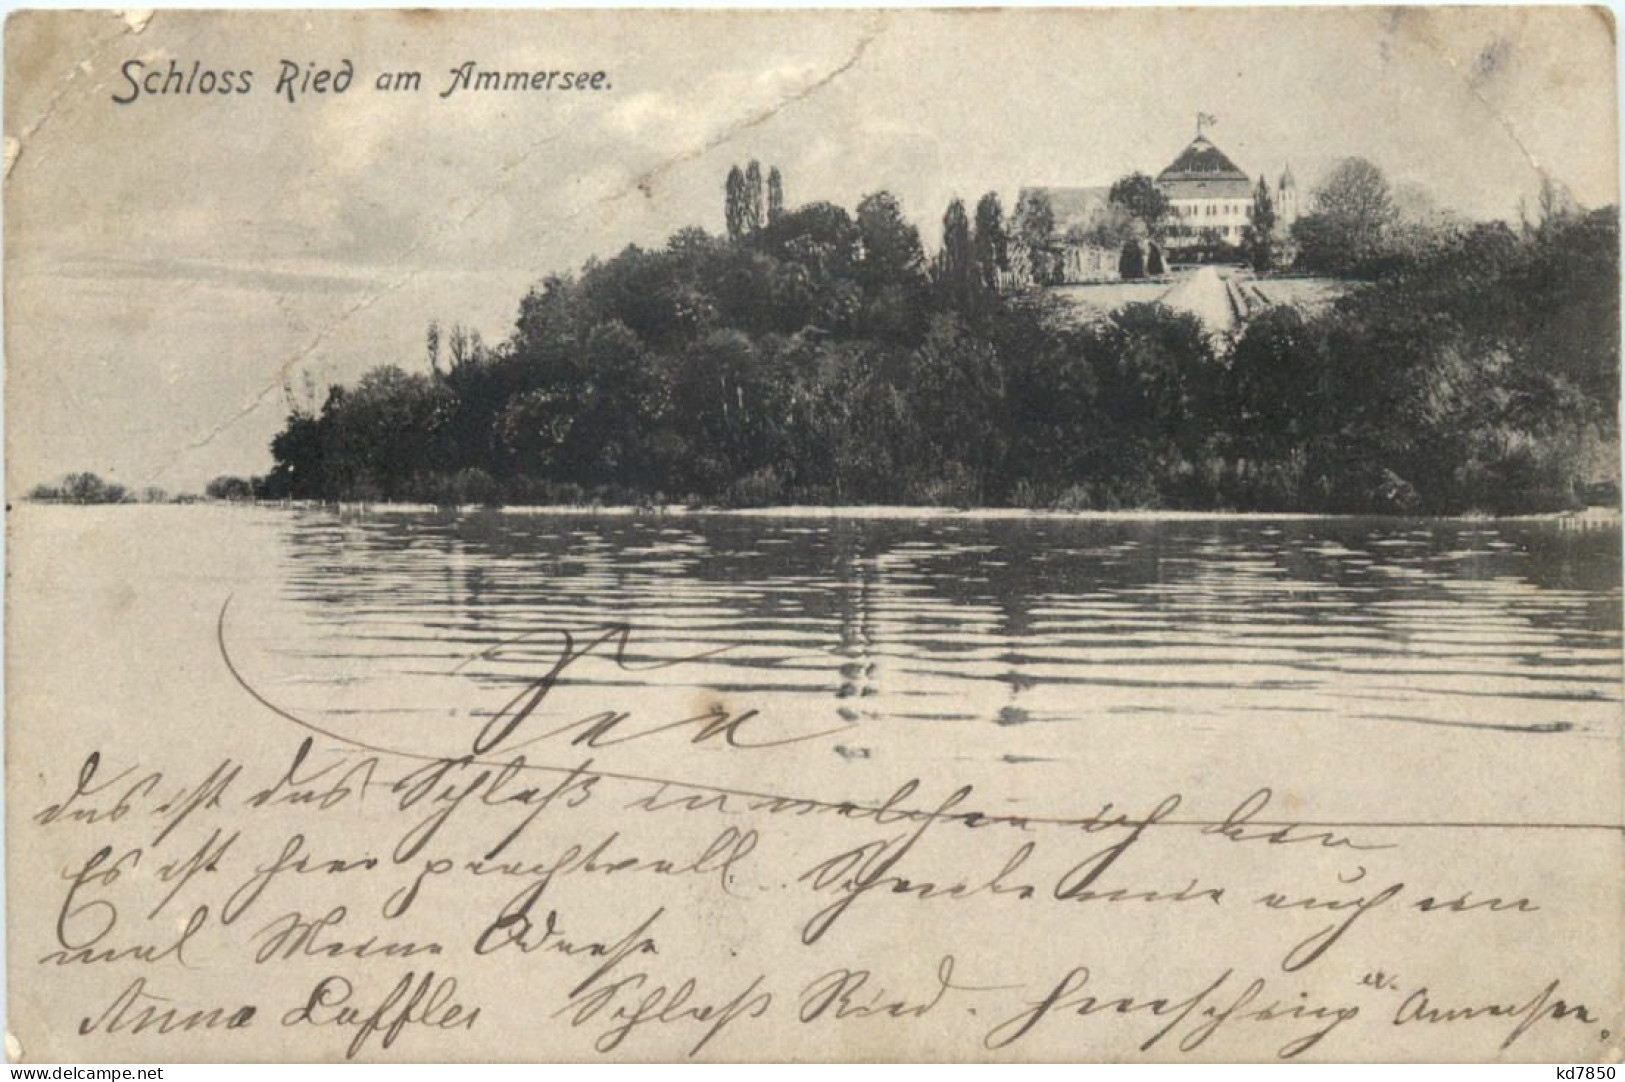 Schloss Ried am Ammersee.
das ist das Schloß in welchen ich bin
Es ist hier prachtvoll. Schreibe mir auch ein
mal Meine Adresse
Anna Laffler Schloß Ried. Herrsching a. Ammersee.
delcampe.net
kd7850